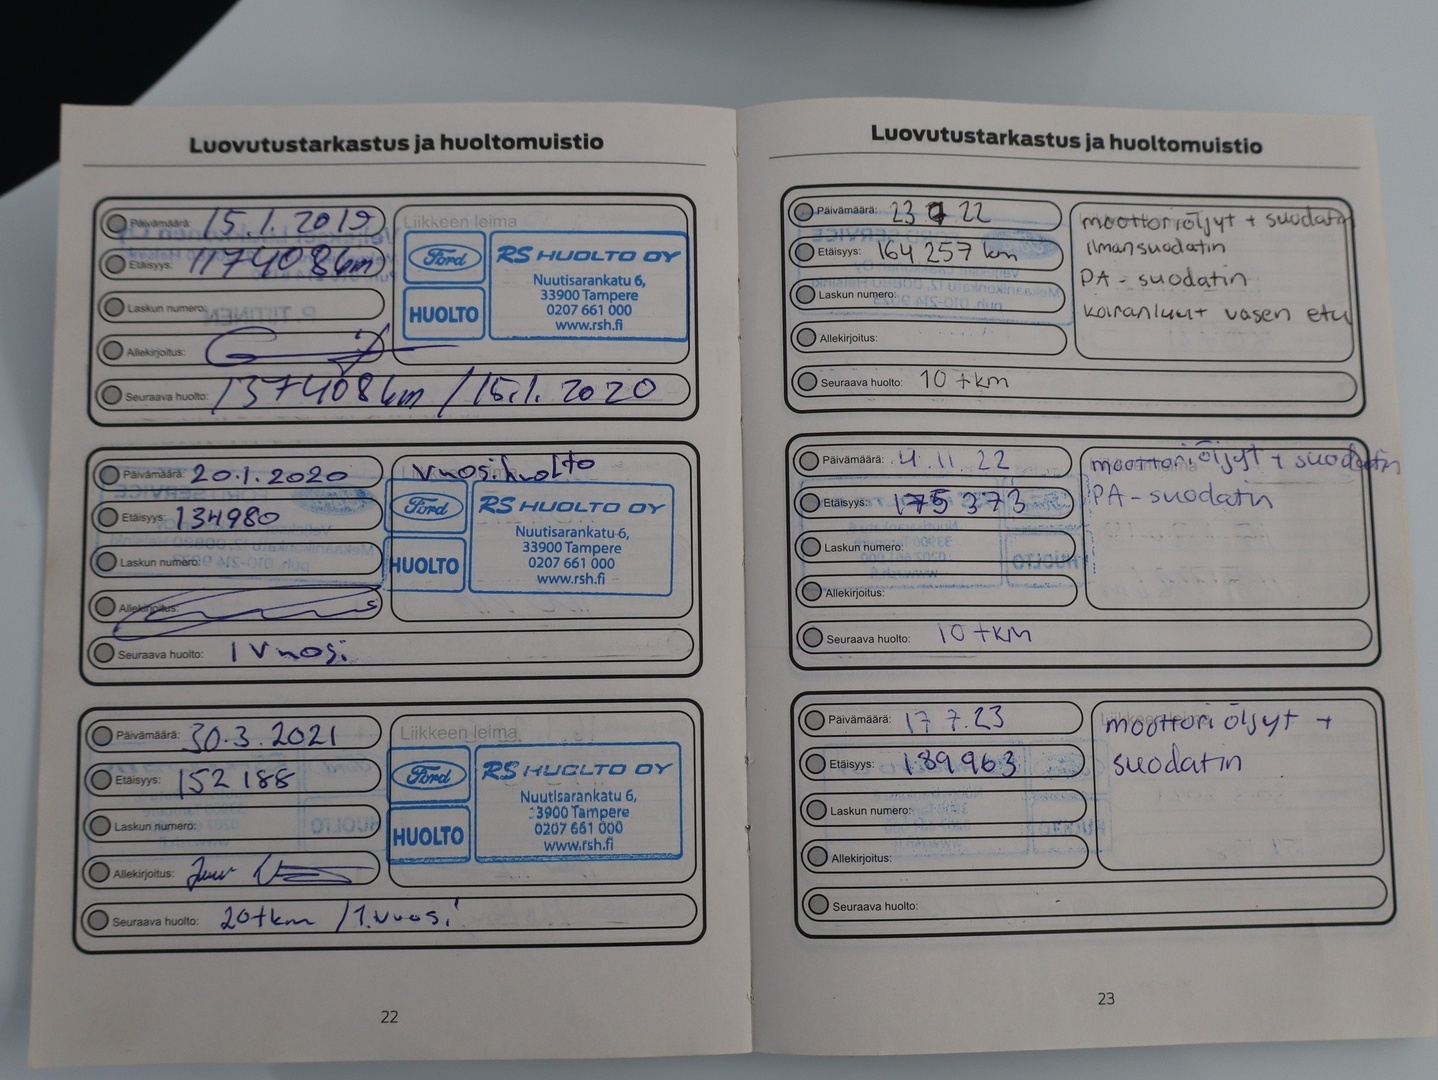 Luovutustarkastus ja huoltomuistio
Päivämäärä: 15.1.2019
Liikkeen leima
Etäisyys: 117408km
Laskun numero:
Allekirjoitus:
Ford
HUOLTO
RS HUOLTO OY
Nuutisarankatu 6,
33900 Tampere
0207 661 000
www.rsh.fi
Seuraava huolto: 137408km / 15.1.2020
Päivämäärä: 20.1.2020
Vuosihuolto
Etäisyys: 134980
Laskun numero:
Allekirjoitus:
Ford
HUOLTO
RS HUOLTO OY
Nuutisarankatu 6,
33900 Tampere
0207 661 000
www.rsh.fi
Seuraava huolto: 1 Vuosi
Päivämäärä: 30.3.2021
Liikkeen leima
Etäisyys: 152188
Laskun numero:
Allekirjoitus:
Ford
HUOLTO
RS HUOLTO OY
Nuutisarankatu 6,
33900 Tampere
0207 661 000
www.rsh.fi
Seuraava huolto: 20tkm / 1.vuosi
22
Luovutustarkastus ja huoltomuistio
Päivämäärä: 23 22
Etäisyys: 164257 km
Laskun numero:
Allekirjoitus:
moottoriöljyt + suodatin
ilmansuodatin
PA-suodatin
koiranluut vasen etu
Seuraava huolto: 10 tkm
Päivämäärä: 4.11.22
Etäisyys: 175373
Laskun numero:
Allekirjoitus:
moottoriöljyt + suodatin
PA-suodatin
Seuraava huolto: 10 tkm
Päivämäärä: 17 7.23
Etäisyys: 189963
Laskun numero:
Allekirjoitus:
moottoriöljyt +
suodatin
Seuraava huolto:
23